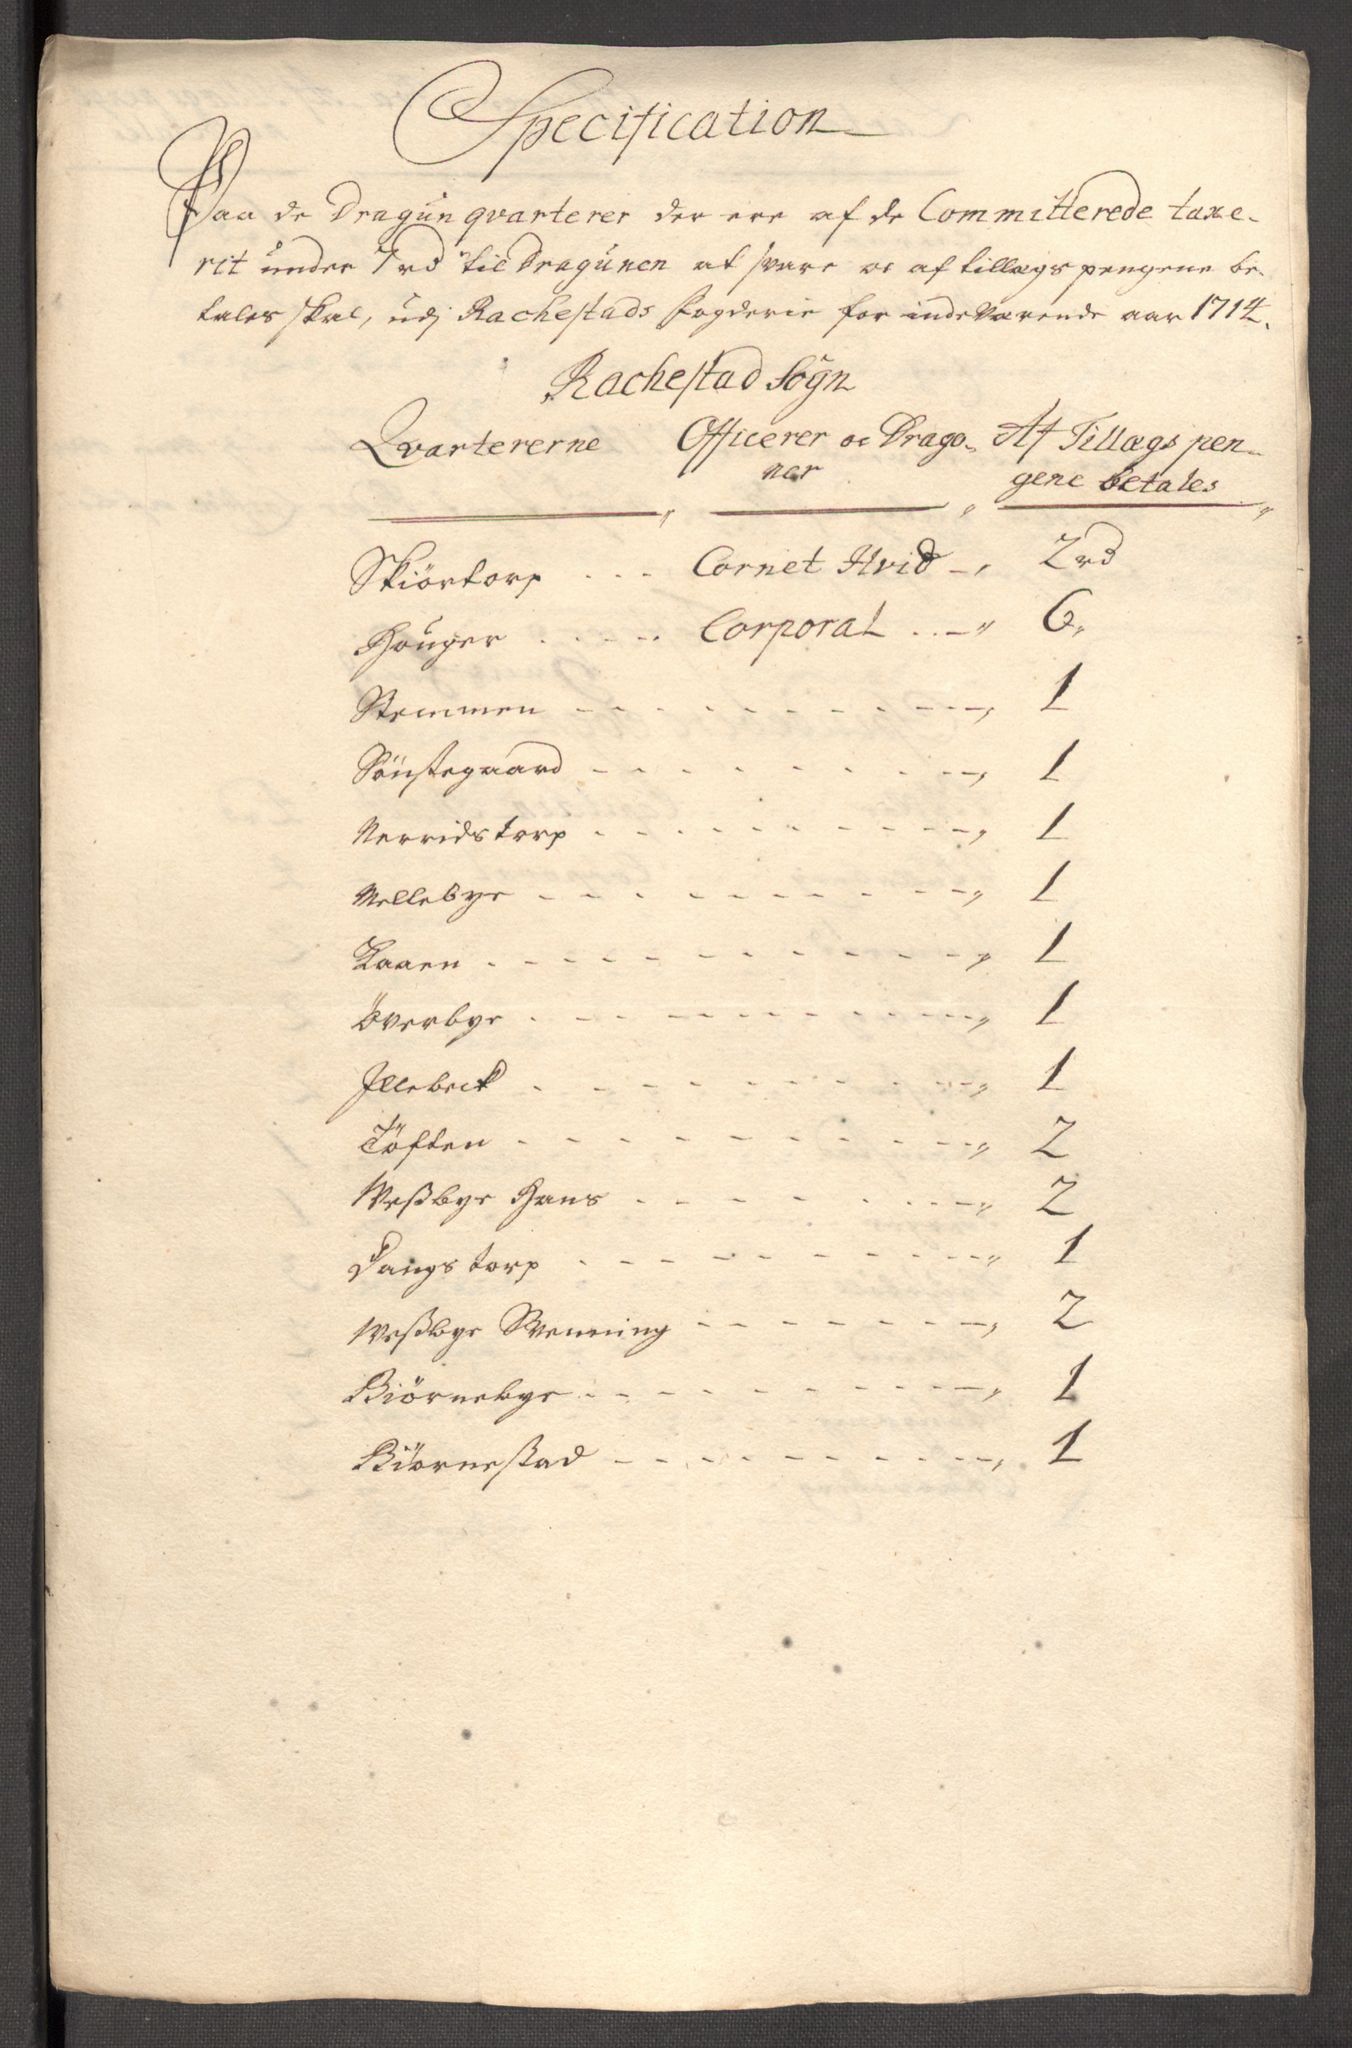 Specification
Paa de Dragun qvarterer der ere af de Committerede taxe-
rit under 7 rd til Dragunen at svare oc af tillægs pengene be-
tales skal, udj Rachestads fogderie for indeværende aar 1714.
Rachestad Sogn
Qvartererne Officerer oc Drago- Af Tillægs pen-
ner gene betales
Skiörtorp Cornet Hvid 2 rd
Houger Corporal 6
Stemmen 1
Sönstegaard 1
Nerridstorp 1
Mellebye 1
Laaen 1
Överbye 1
Illebeck 1
Töften 2
Weßbye Hans 2
Dangstorp 1
Weßbye Svenning 2
Biörnebye 1
Biörnestad 1